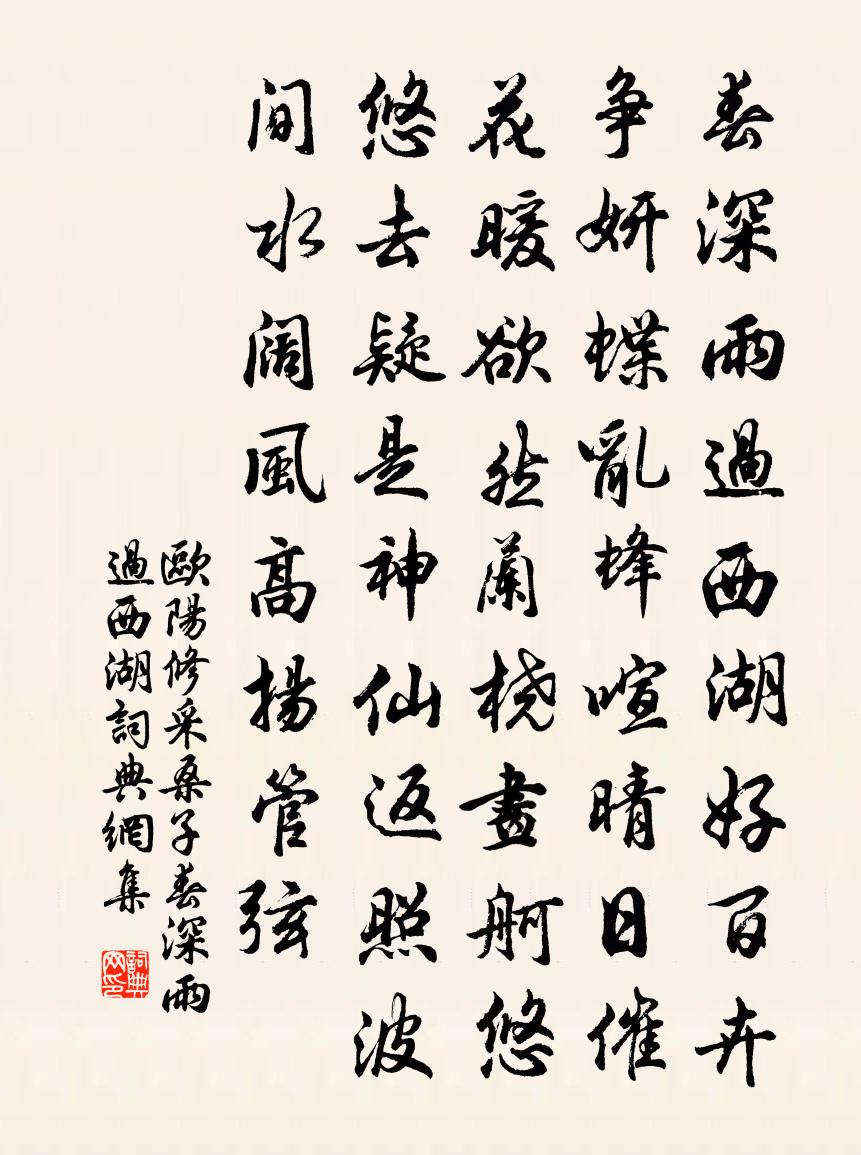 春深雨過西湖好百卉
争妍蝶亂蜂喧晴日催
花暖欲然蘭橈畫舸悠
悠去疑是神仙返照波
间水阔風高揚管弦
歐陽修采桑子春深雨
過西湖詞典網集
詞典
网印